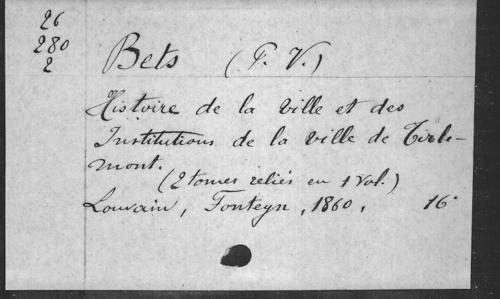 26
280
2
Bets (P. V.)
Histoire de la ville et des
Institutions de la ville de Tirle-
mont.
(2 tomes reliés en 1 vol.)
Louvain, Fonteyn, 1860. 16°